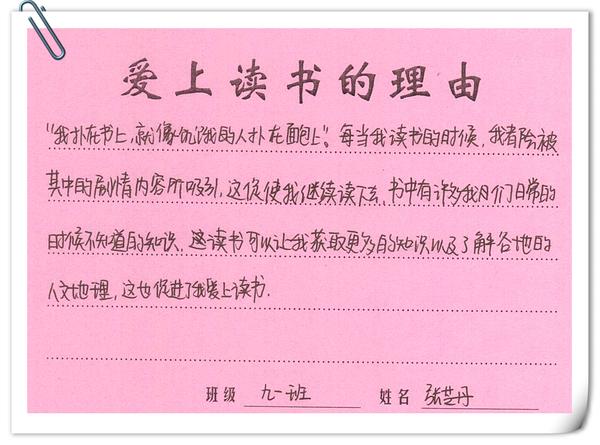 爱上读书的理由
"我扑在书上,就像饥饿的人扑在面包上"。每当我读书的时候,我都会被
其中的剧情内容所吸引,这促使我继续读下去,书中有许多我们日常的
时候不知道的知识。这读书可以让我获取更多的知识以及了解各地的
人文地理,这也促进了我爱上读书.
班级 九一班 姓名 张芝丹